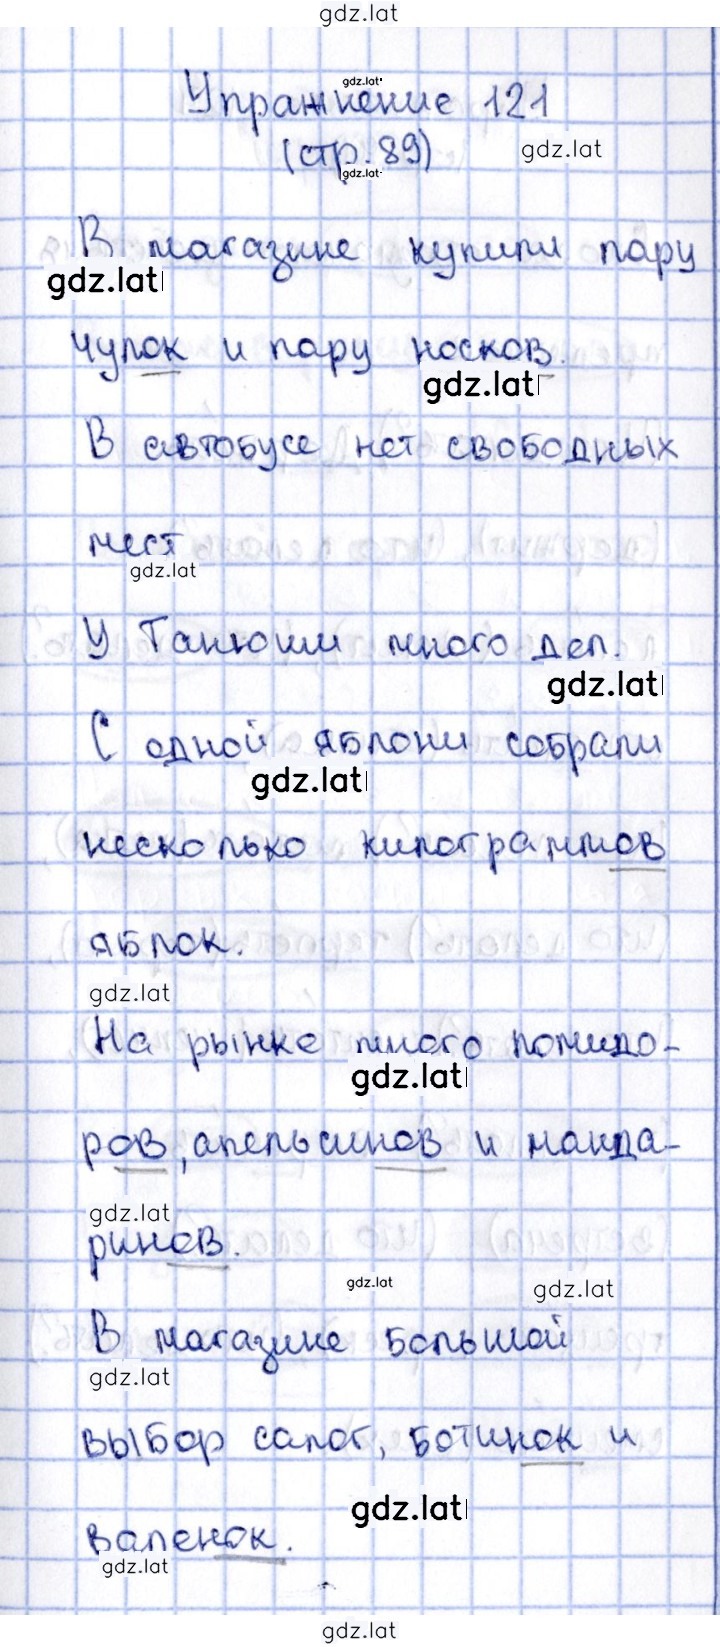 gdz.lat
gdz.lat
Упражнение 121
(стр. 89) gdz.lat
gdz.lat
В магазине купили пару
gdz.lat
чулок и пару носков.
gdz.lat
В автобусе нет свободных
мест
gdz.lat
У Танюши много дел.
gdz.lat
С одной яблони собрали
gdz.lat
несколько килограммов
яблок.
gdz.lat
На рынке много помидо-
gdz.lat
ров, апельсинов и манда-
gdz.lat
ринов.
gdz.lat gdz.lat
В магазине большой
gdz.lat
выбор сапог, ботинок и
gdz.lat
валенок.
gdz.lat
gdz.lat